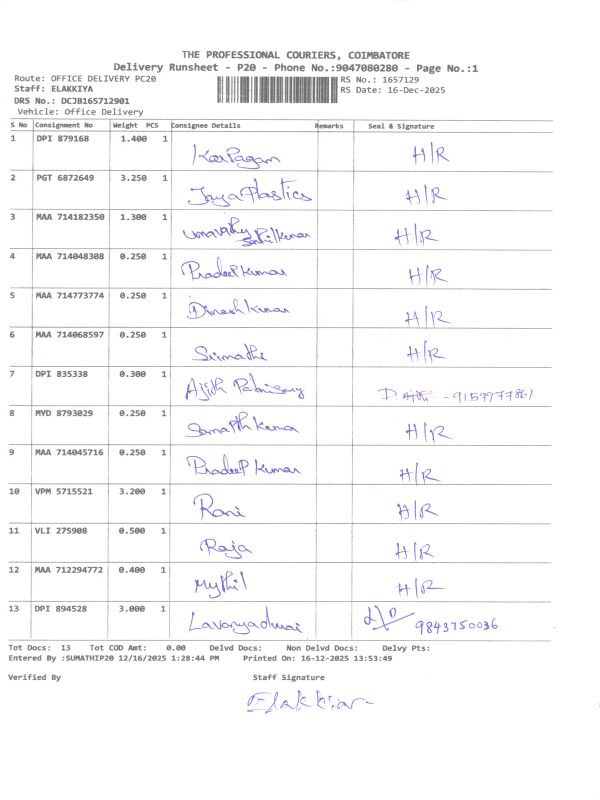 THE PROFESSIONAL COURIERS, COIMBATORE
Delivery Runsheet - P20 - Phone No.:9047080280 - Page No.:1
Route: OFFICE DELIVERY PC20 RS No.: 1657129
Staff: ELAKKIYA RS Date: 16-Dec-2025
DRS No.: DCJB165712901
Vehicle: Office Delivery
S No Consignment No Weight PCS Consignee Details Remarks Seal & Signature
1 DPI 879168 1.400 1 Karpagam H/R
2 PGT 6872649 3.250 1 Jaya Plastics H/R
3 MAA 714182350 1.300 1 Umavathy
Senthilkumar H/R
4 MAA 714048308 0.250 1 Pradeepkumar H/R
5 MAA 714773774 0.250 1 Dineshkumar H/R
6 MAA 714068597 0.250 1 Srimathi H/R
7 DPI 835338 0.300 1 Ajith - 9159977861
8 MYD 8793029 0.250 1 Sampathkumar H/R
9 MAA 714045716 0.250 1 Pradeep kumar H/R
10 VPM 5715521 3.200 1 Rani H/R
11 VLI 275908 0.500 1 Raja H/R
12 MAA 712294772 0.400 1 Mythil H/R
13 DPI 894528 3.000 1 Lavanyadurai 9843750036
Tot Docs: 13 Tot COD Amt: 0.00 Delvd Docs: Non Delvd Docs: Delvy Pts:
Entered By :SUMATHIP20 12/16/2025 1:28:44 PM Printed On: 16-12-2025 13:53:49
Verified By Staff Signature